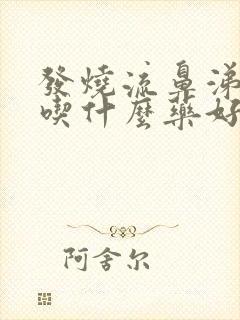 發燒流鼻涕
喫什麼藥好
阿舍尔